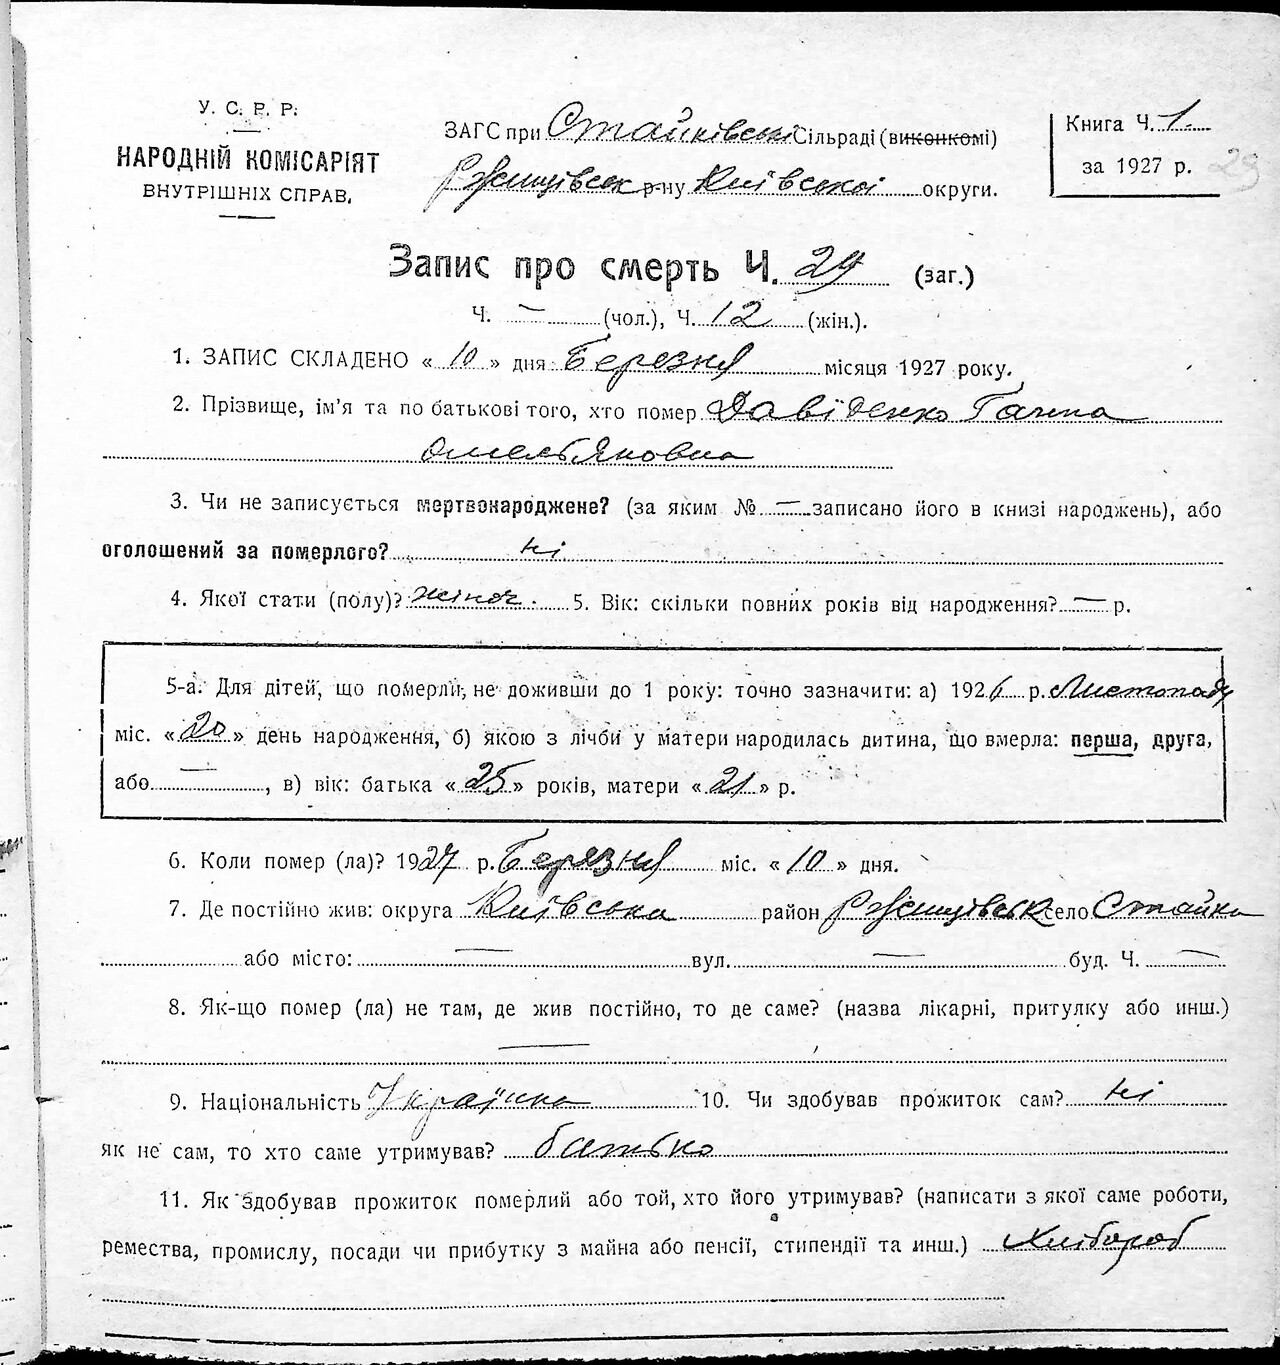 У. С. Р. Р.
НАРОДНІЙ КОМІСАРІЯТ
ВНУТРІШНІХ СПРАВ.
ЗАГС при Стайківській Сільраді (виконкомі)
Ржищівськ р-ну Київської округи.
Книга Ч. 1.
за 1927 р. 29
Запис про смерть Ч. 29 (заг.)
Ч. — (чол.), Ч. 12 (жін.).
1. ЗАПИС СКЛАДЕНО « 10 » дня Березня місяця 1927 року.
2. Прізвище, ім'я та по батькові того, хто помер Давіденко Ганна
Омелбяновна
3. Чи не записується мертвонароджене? (за яким № — записано його в книзі народжень), або
оголошений за померлого? ні
4. Якої стати (полу)? жіноч. 5. Вік: скільки повних років від народження? — р.
5-а. Для дітей, що померли, не доживши до 1 року: точно зазначити: а) 1926 р. Листопаду
міс. « 20 » день народження, б) якою з лічби у матери народилась дитина, що вмерла: перша, друга,
або — , в) вік: батька « 25 » років, матери « 21 » р.
6. Коли помер (ла)? 1927 р. Березня міс. « 10 » дня.
7. Де постійно жив: округа Київська район Ржищівськ село Стайки
або місто: — вул. — буд. Ч. —
8. Як-що помер (ла) не там, де жив постійно, то де саме? (назва лікарні, притулку або инш.)
—
9. Національність Українка 10. Чи здобував прожиток сам? ні
як не сам, то хто саме утримував? батько
11. Як здобував прожиток померлий або той, хто його утримував? (написати з якої саме роботи,
ремества, промислу, посади чи прибутку з майна або пенсії, стипендії та инш.) Хлібороб